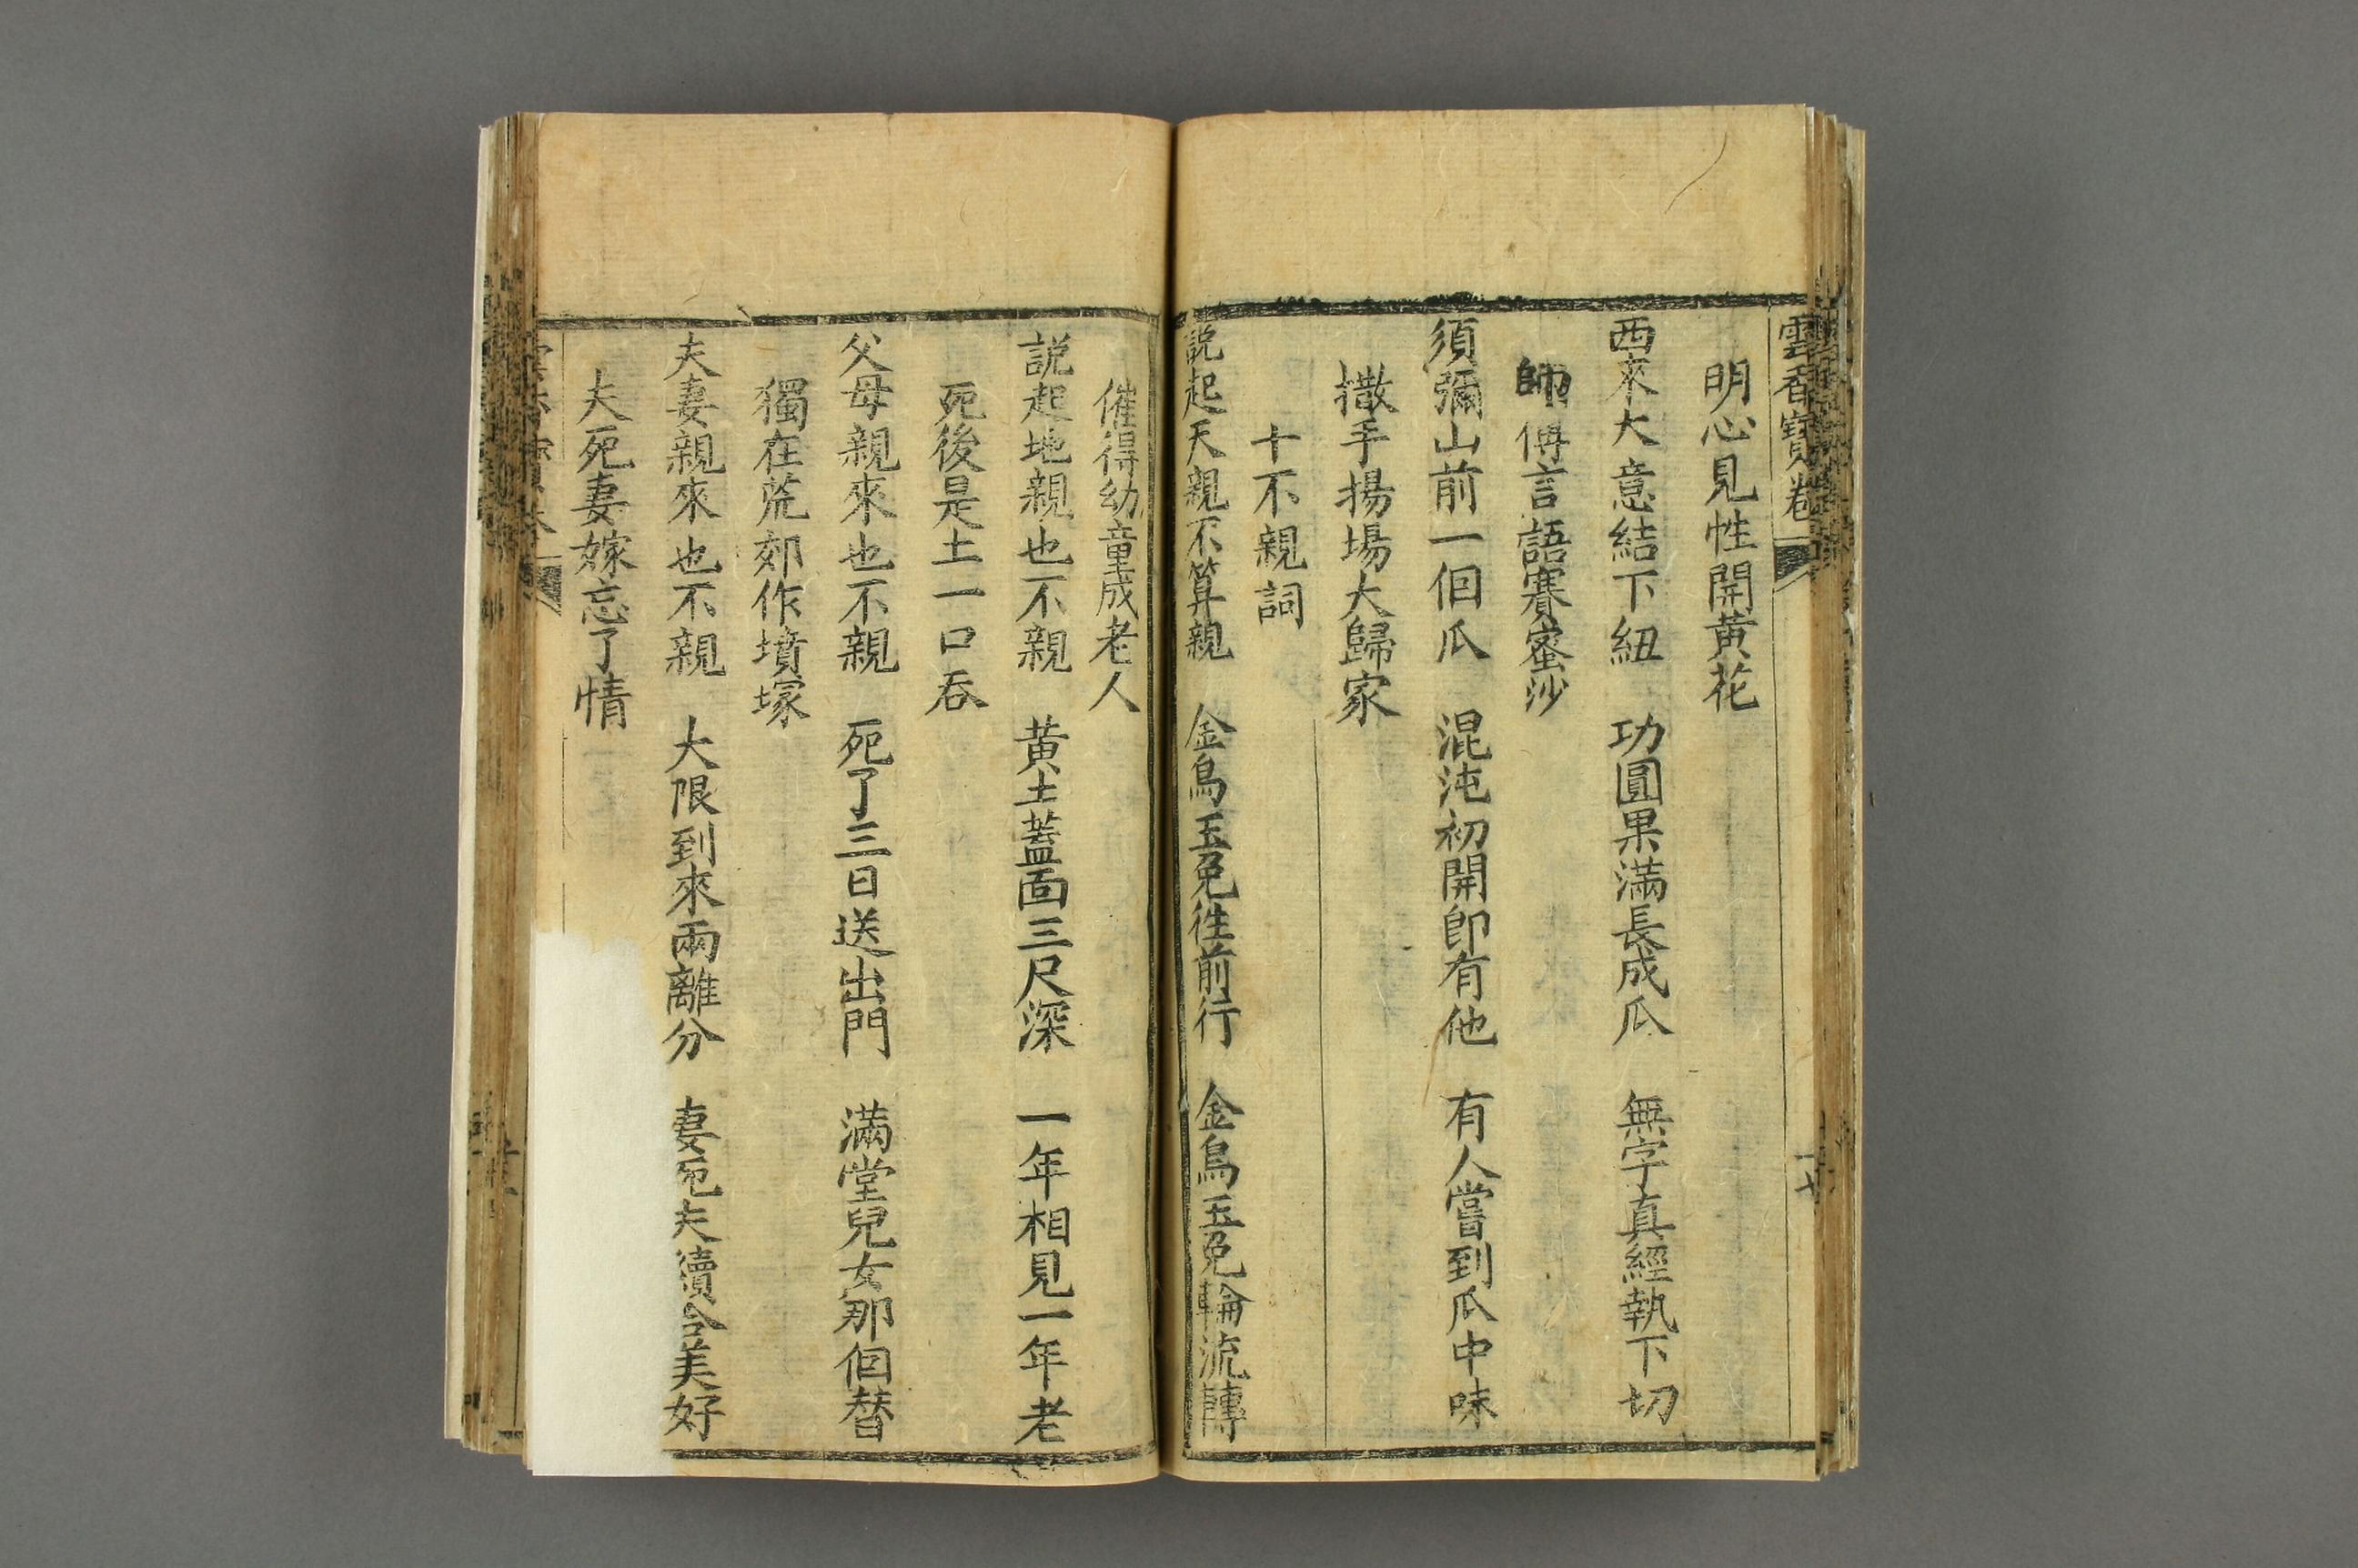 雲香寶卷
明心見性開黃花
西來大意結下紐　功圓果滿長成瓜　無字真經執下切
師傅言語賽蜜沙
須彌山前一個瓜　混沌初開即有他　有人嘗到瓜中味
撒手揚場大歸家
十不親詞
説起天親不算親　金烏玉兔徃前行　金烏玉兔輪流轉
催得幼童成老人
説起地親也不親　黃土蓋面三尺深　一年相見一年老
死後是土一口吞
父母親來也不親　死了三日送出門　滿堂兒女那個替
獨在荒郊作墳塚
夫妻親來也不親　大限到來兩離分　妻死夫續合美好
夫死妻嫁忘了情